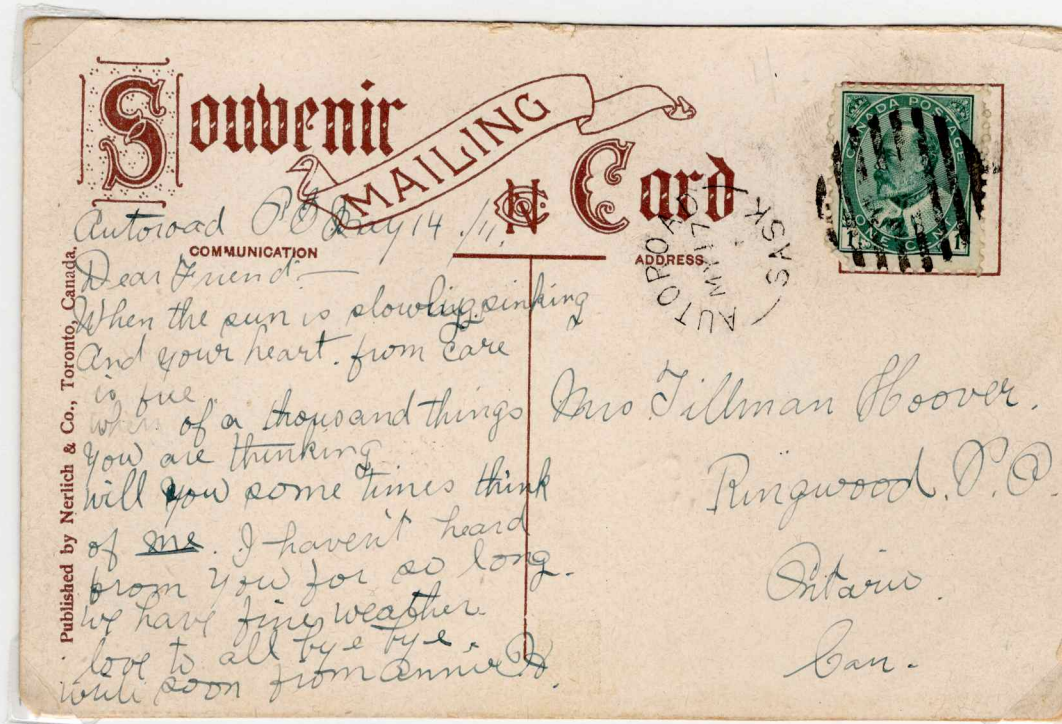 Souvenir
MAILING
Card
CANADA POSTAGE
ONE CENT
1 1
AUTOROAD
MY 17
SASK
COMMUNICATION
ADDRESS
Published by Nerlich & Co., Toronto, Canada.
Autoroad P.O May 14 /11.
Dear Friend:—
When the sun is slowling sinking
And your heart. from care
is free
when of a thousand things
you are thinking
will you some times think
of me. I haven't heard
from you for so long.
we have fine weather
love to all bye bye.
write soon from annie H.
Mrs Tillman Hoover.
Ringwood. P.O
Ontario.
Can.